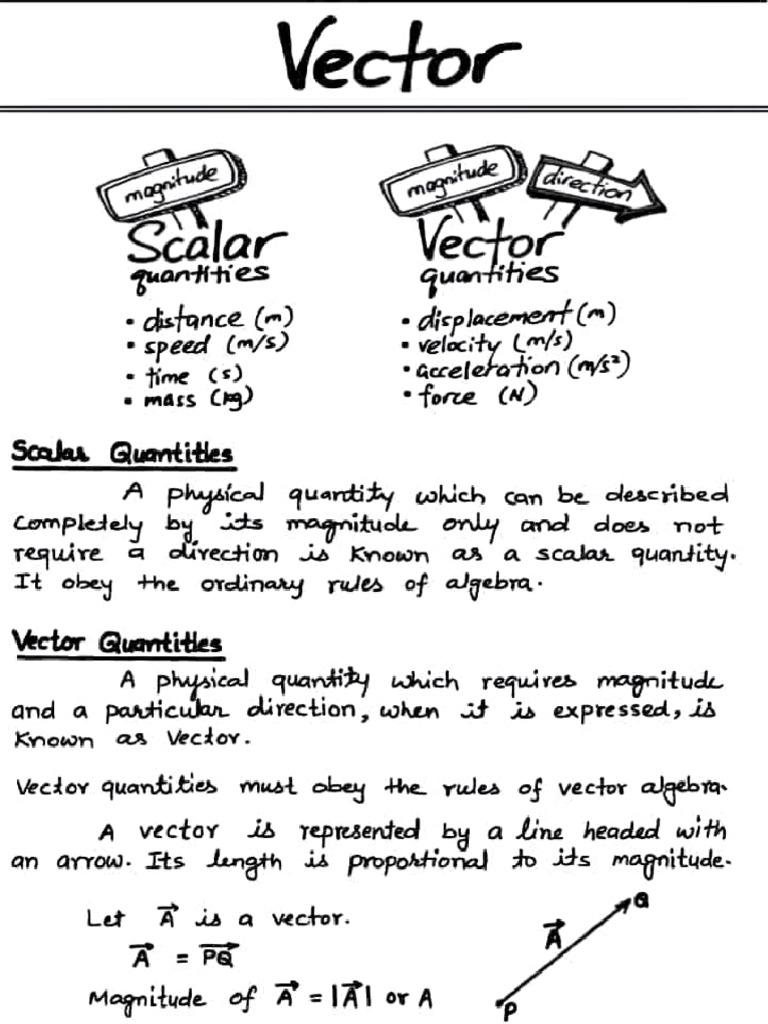 Vector
magnitude
magnitude
direction
Scalar
quantities
Vector
quantities
• distance (m)
• speed (m/s)
• time (s)
• mass (kg)
• displacement (m)
• velocity (m/s)
• acceleration (m/s²)
• force (N)
Scalar Quantities
A physical quantity which can be described
completely by its magnitude only and does not
require a direction is known as a scalar quantity.
It obey the ordinary rules of algebra.
Vector Quantities
A physical quantity which requires magnitude
and a particular direction, when it is expressed, is
known as Vector.
Vector quantities must obey the rules of vector algebra.
A vector is represented by a line headed with
an arrow. Its length is proportional to its magnitude.
Let A⃗ is a vector.
A⃗ = P⃗Q⃗
Magnitude of A⃗ = |A⃗| or A
Q
A⃗
P